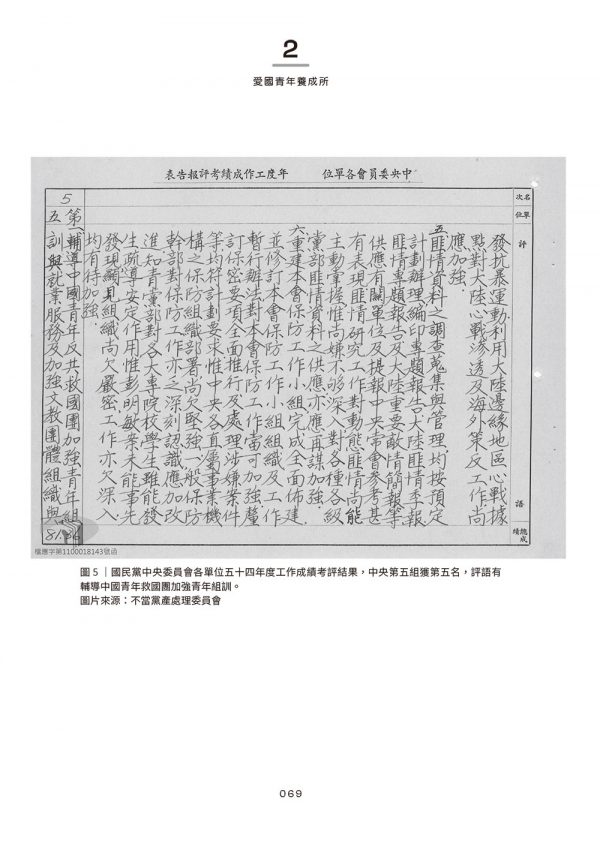 2
愛國青年養成所
中央委員會各單位　年度工作成績考評報告表
名次
單位
評　語
總成績
發抗暴運動利用大陸邊緣地區心戰據
點對大陸心戰滲透及海外策反工作尚
應加強.
五、匪情資料之調查蒐集與管理.均按預定
計劃辦理編印專題報告大陸匪情季報
匪情專題報告及大陸重要敵情簡報等
供應有關單位及提報中央常會參考甚
有表現匪情研究工作對動態匪情尚能
主動掌握惟尚嫌不够深入對各種各級
黨部匪情資料之供應亦應再謀加強.
六、重建本會保防工作小組完成全面佈建
並修訂本會保防工作小組組織及工作
暫行辦法對本會保防工作當可加強釐
訂保密要項全面推行及處理涉嫌案件
等均符計劃要求惟中央各直屬事業機
構之保防組織部署尚欠堅強一般保防
幹部對保防工作亦乏深刻認識應加改
進知青黨部對各大專院校學生雖能發
生疏導安定作用惟彭明敏案未能事先
發現顯見組織尚欠嚴密工作亦欠深入
均有待加強.
5
第五
一、輔導中國青年反共救國團加強青年組
訓與就業服務及加強文教團體組織與
81.36
檔應字第1100018143號函
圖 5｜國民黨中央委員會各單位五十四年度工作成績考評結果，中央第五組獲第五名，評語有
輔導中國青年救國團加強青年組訓。
圖片來源：不當黨產處理委員會
069